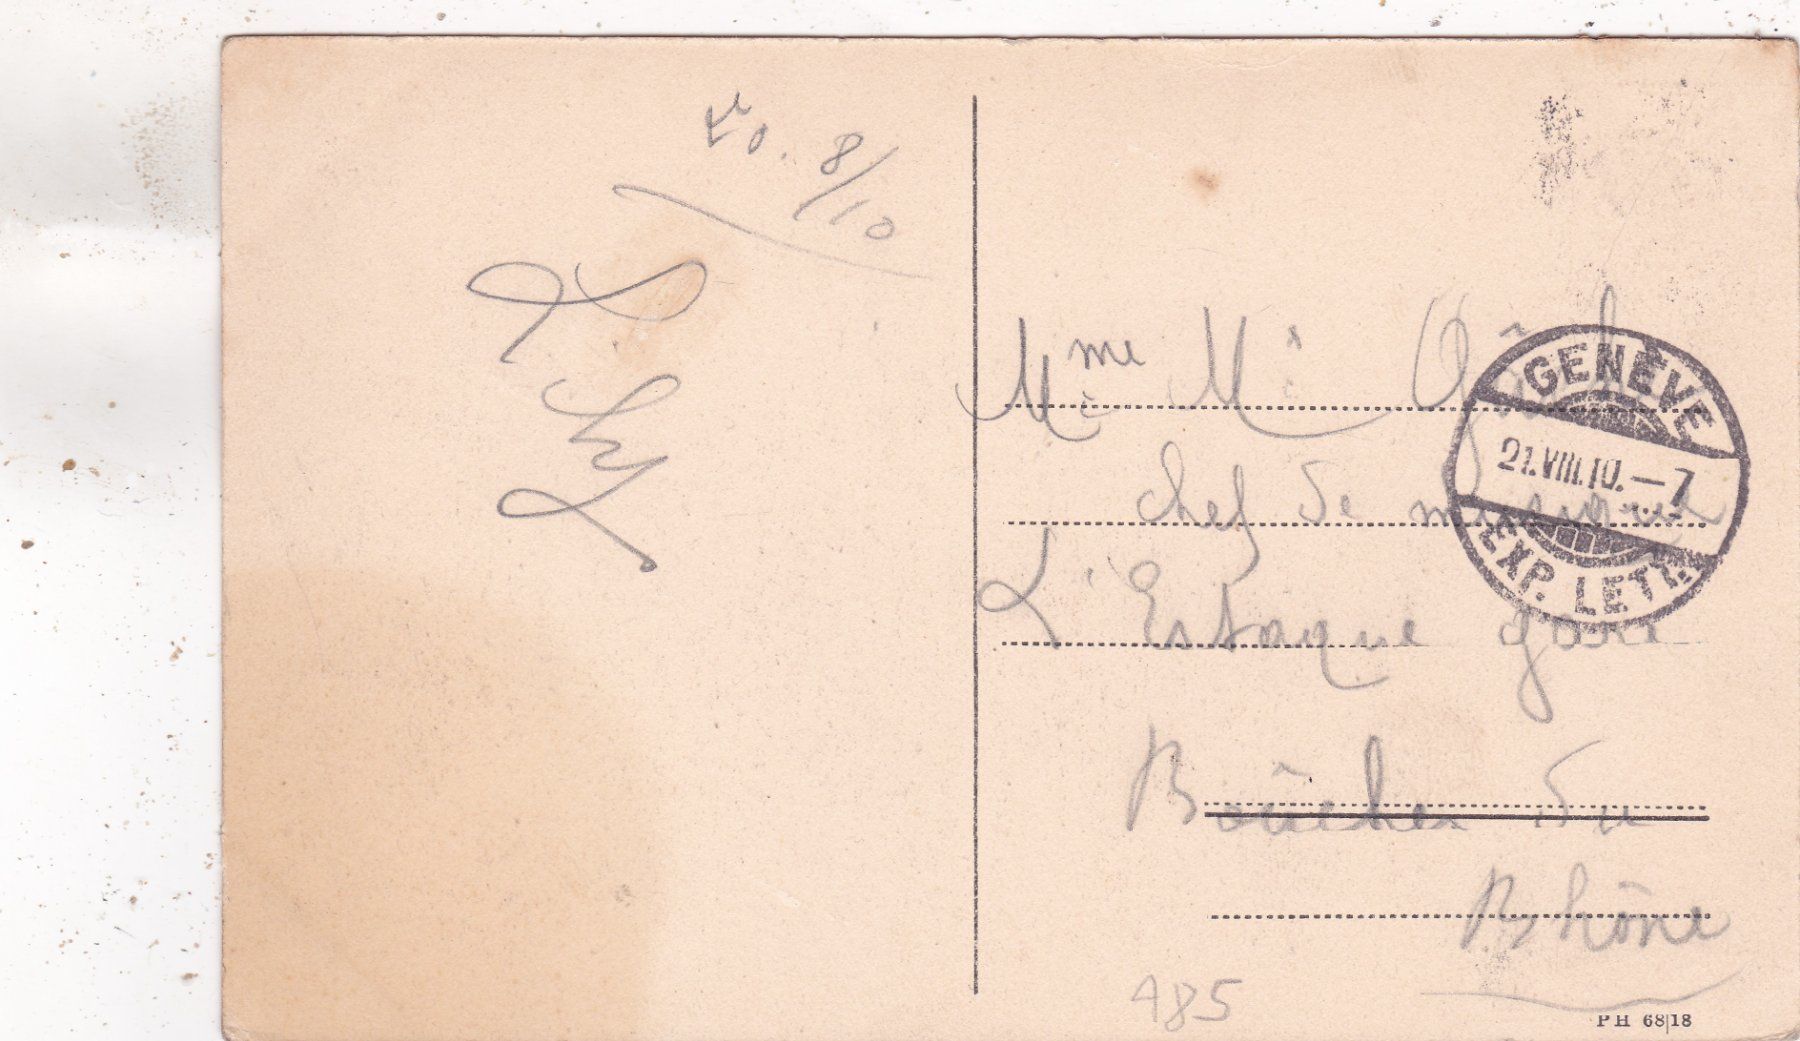 20. 8/10
Mme Mi
chef de musique
L'Estaque gare
Bouches du
Rhône
GENÈVE
21.VIII.10.—7
EXP. LETT.
185
PH 68|18